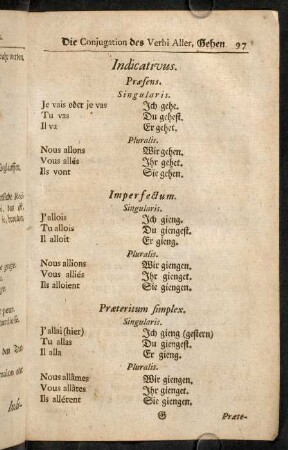 Die Conjugation des Verbi Aller, Gehen 97
Indicativus.
Præsens.
Singularis.
Je vais oder je vas Ich gehe.
Tu vas Du gehest.
Il va Er gehet.
Pluralis.
Nous allons Wir gehen.
Vous allés Ihr gehet.
Ils vont Sie gehen.
Imperfectum.
Singularis.
J'allois Ich gieng.
Tu allois Du giengest.
Il alloit Er gieng.
Pluralis.
Nous allions Wir giengen.
Vous alliés Ihr gienget.
Ils alloient Sie giengen.
Præteritum simplex.
Singularis.
J'allai (hier) Ich gieng (gestern)
Tu allas Du giengest.
Il alla Er gieng.
Pluralis.
Nous allâmes Wir giengen.
Vous allâtes Ihr gienget.
Ils allérent Sie giengen.
G Præte-